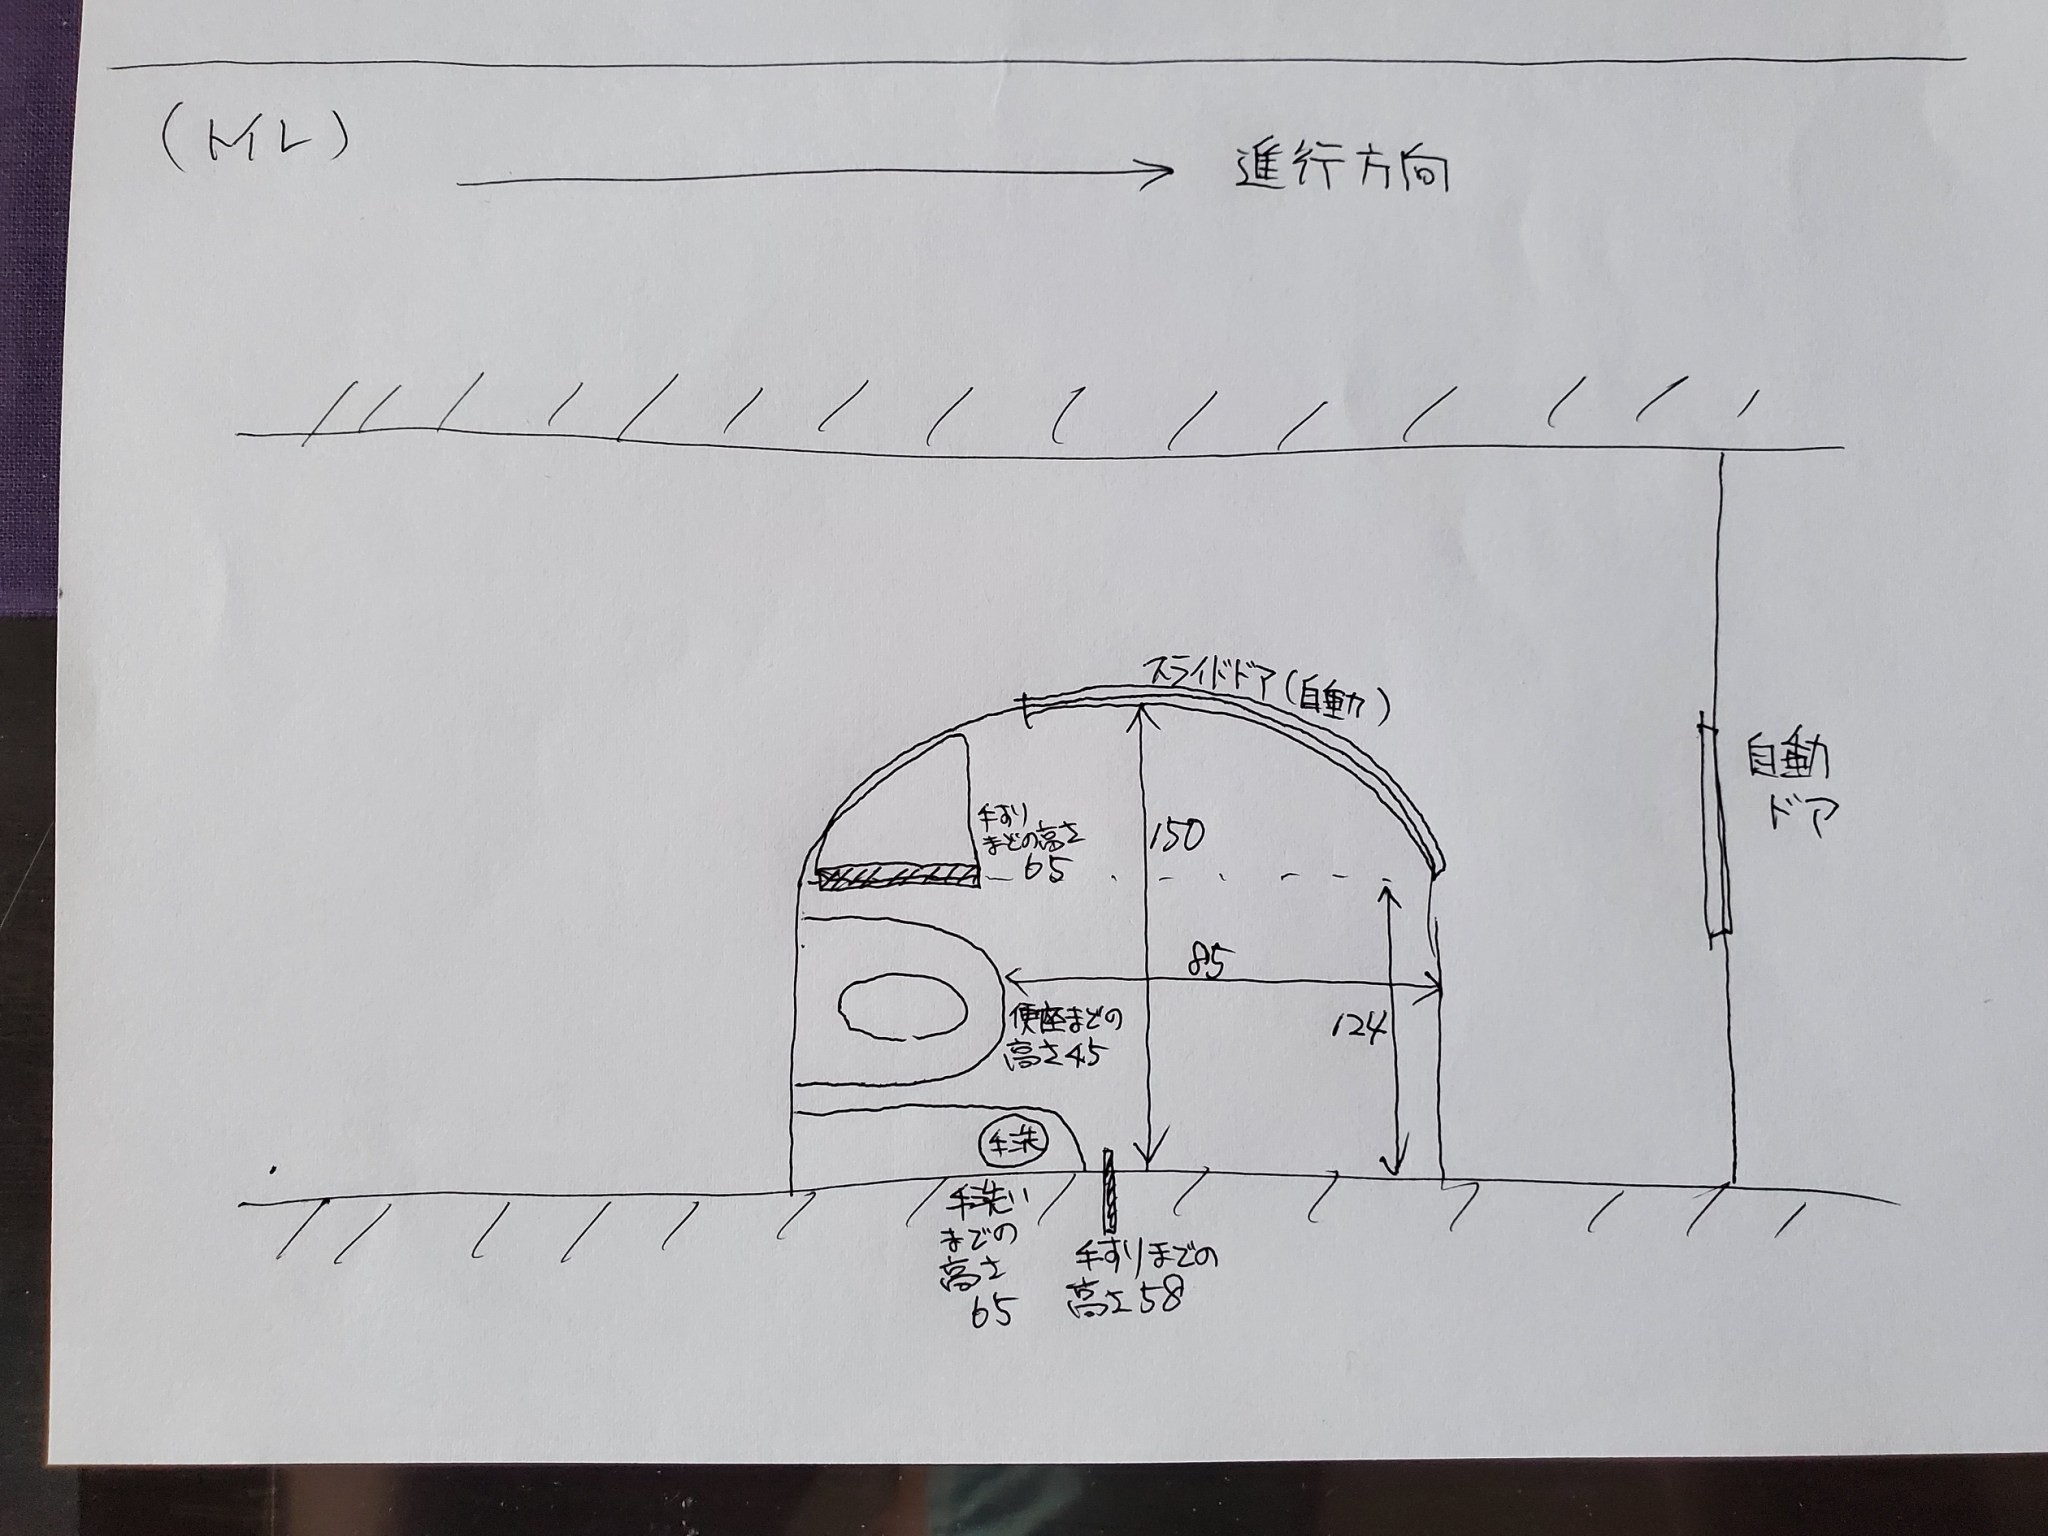 (トイレ)
進行方向
スライドドア(自動)
自動
ドア
手すり
までの高さ
65
150
85
便座までの
高さ45
124
手洗
手洗い
までの
高さ
65
手すりまでの
高さ58